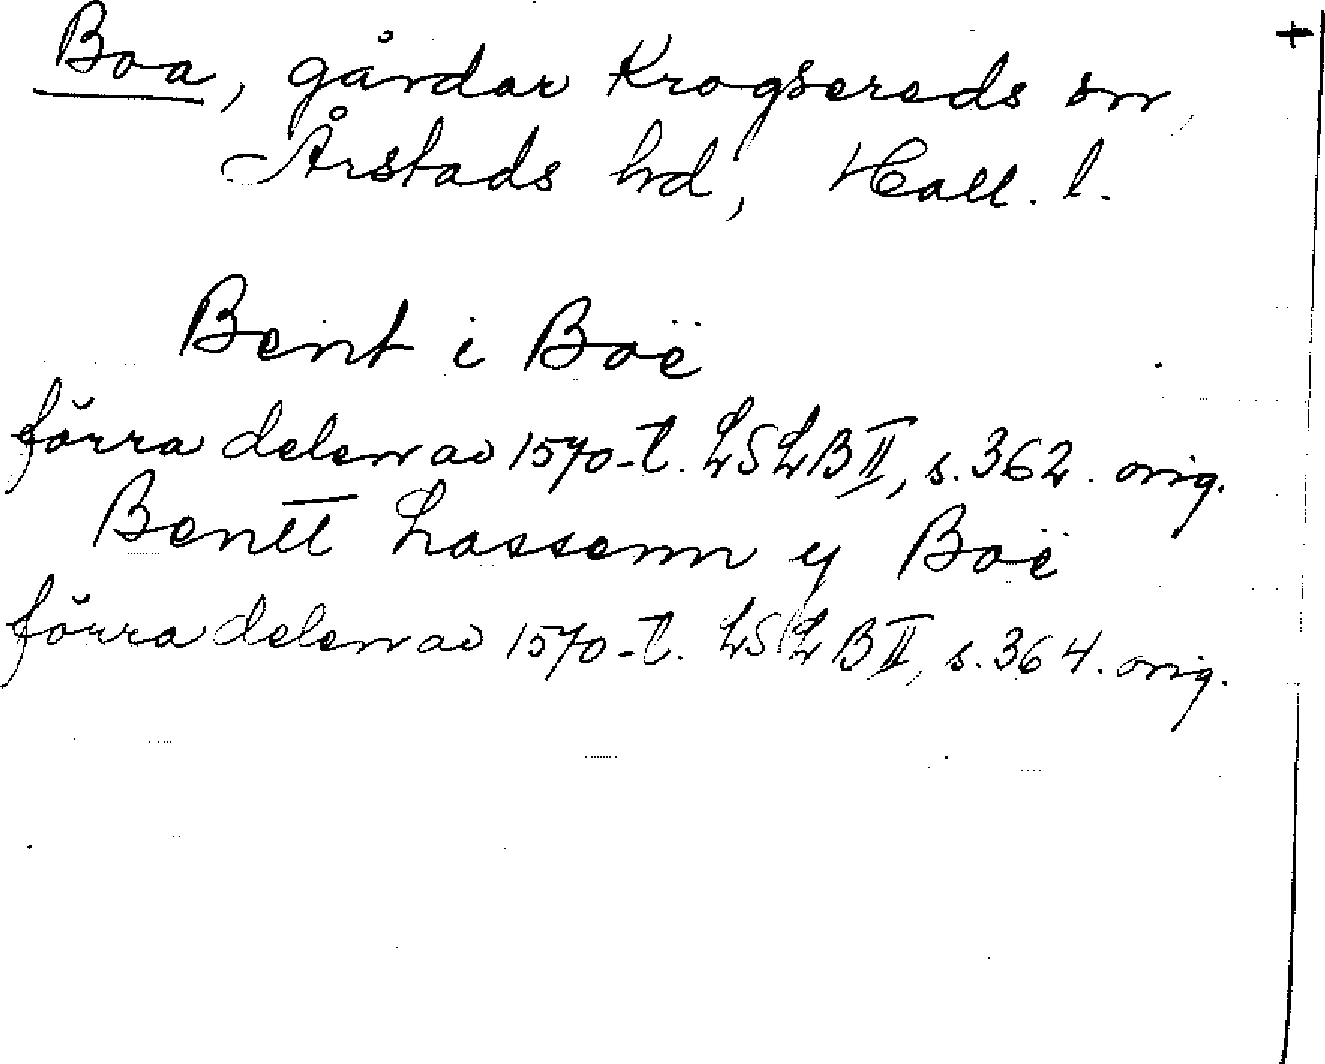 Boa, gårdar Krogsereds sn,
Årstads hd, Hall. l.
Bent i Boë
förra delen av 1570-t. LSLB II, s. 362. orig.
Bentt Lassenn y Boë
förra delen av 1570-t. LSLB II, s. 364. orig.